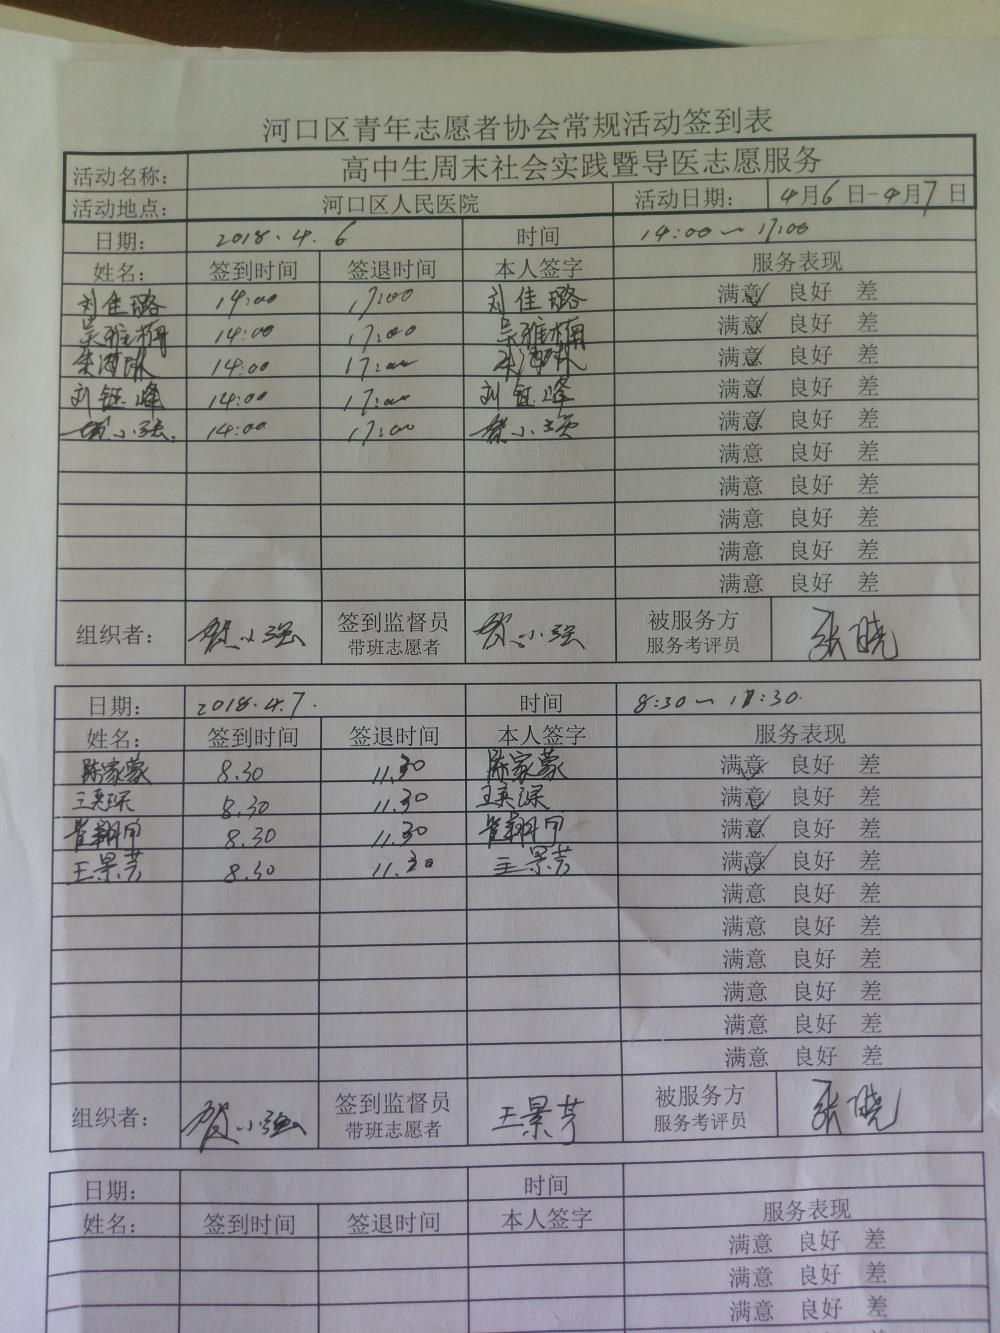 河口区青年志愿者协会常规活动签到表
活动名称： 高中生周末社会实践暨导医志愿服务
活动地点： 河口区人民医院 活动日期： 4月6日-4月7日
日期： 2018.4.6 时间 14:00～17:00
姓名： 签到时间 签退时间 本人签字 服务表现
刘佳璐 14:00 17:00 刘佳璐 满意✓ 良好 差
吴雅楠 14:00 17:00 吴雅楠 满意✓ 良好 差
14:00 17:00 满意✓ 良好 差
刘钰峰 14:00 17:00 刘钰峰 满意✓ 良好 差
小强 14:00 17:00 小强 满意✓ 良好 差
满意 良好 差
满意 良好 差
满意 良好 差
满意 良好 差
满意 良好 差
组织者： 小强 签到监督员 小强 被服务方 张晓
带班志愿者 服务考评员
日期： 2018.4.7. 时间 8:30～11:30.
姓名： 签到时间 签退时间 本人签字 服务表现
陈家蒙 8.30 11.30 陈家蒙 满意✓ 良好 差
王英琛 8.30 11.30 王英琛 满意✓ 良好 差
8.30 11.30 满意✓ 良好 差
王景芳 8.30 11.30 王景芳 满意✓ 良好 差
满意 良好 差
满意 良好 差
满意 良好 差
满意 良好 差
满意 良好 差
满意 良好 差
组织者： 贺小强 签到监督员 王景芳 被服务方 张晓
带班志愿者 服务考评员
日期： 时间
姓名： 签到时间 签退时间 本人签字 服务表现
满意 良好 差
满意 良好 差
满意 良好 差